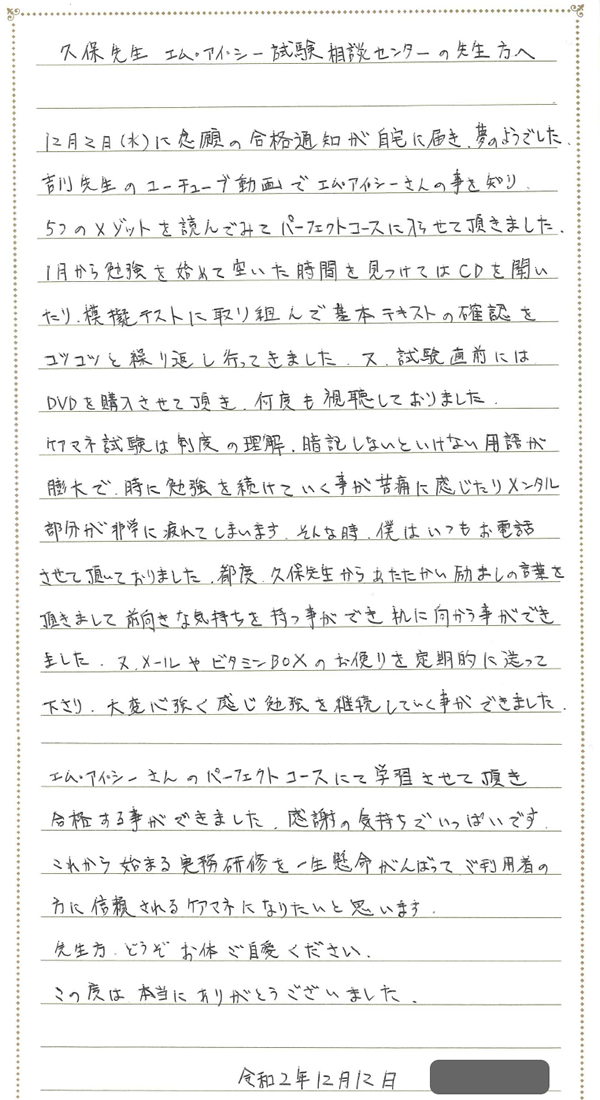 久保先生 エム・アイ・シー試験相談センターの先生方へ
12月2日(水)に念願の合格通知が自宅に届き、夢のようでした。
吉川先生のユーチューブ動画でエム・アイ・シーさんの事を知り、
5つのメゾットを読んでみてパーフェクトコースに入らせて頂きました。
1月から勉強を始めて空いた時間を見つけてはCDを聞い
たり、模擬テストに取り組んで基本テキストの確認を
コツコツと繰り返し行ってきました。又、試験直前には
DVDを購入させて頂き、何度も視聴しておりました。
ケアマネ試験は制度の理解、暗記しないといけない用語が
膨大で、時に勉強を続けていく事が苦痛に感じたりメンタル
部分が非常に疲れてしまいます。そんな時、僕はいつもお電話
させて頂いておりました。都度、久保先生からあたたかい励ましの言葉を
頂きまして前向きな気持ちを持つ事ができ机に向かう事ができ
ました。又、メールやビタミンBOXのお便りを定期的に送って
下さり、大変心強く感じ勉強を継続していく事ができました。
エム・アイ・シーさんのパーフェクトコースにて学習させて頂き
合格する事ができました。感謝の気持ちでいっぱいです。
これから始まる実務研修を一生懸命がんばってご利用者の
方に信頼されるケアマネになりたいと思います。
先生方、どうぞお体ご自愛ください。
この度は本当にありがとうございました。
令和2年12月12日